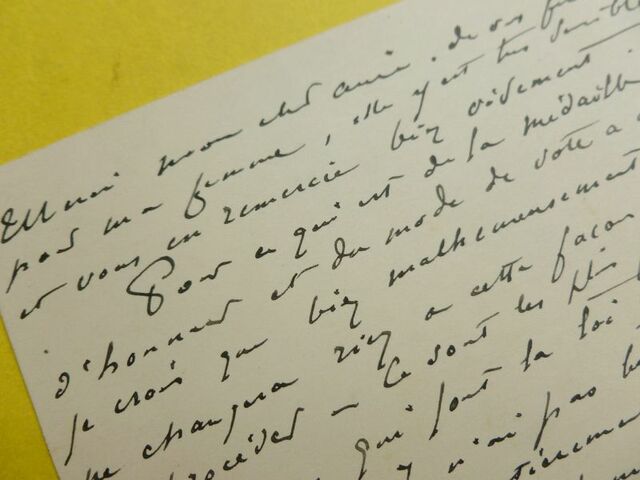 Merci mon cher ami, de vos
pour ma femme, elle y est très sensible
et vous en remercie bien vivement
Pour ce qui est de la médaille
d'honneur et du mode de vote a
je crois que bien malheureusement
ne changera rien a cette façon
procéder – Ce sont les plus
qui font la loi
n'ai pas